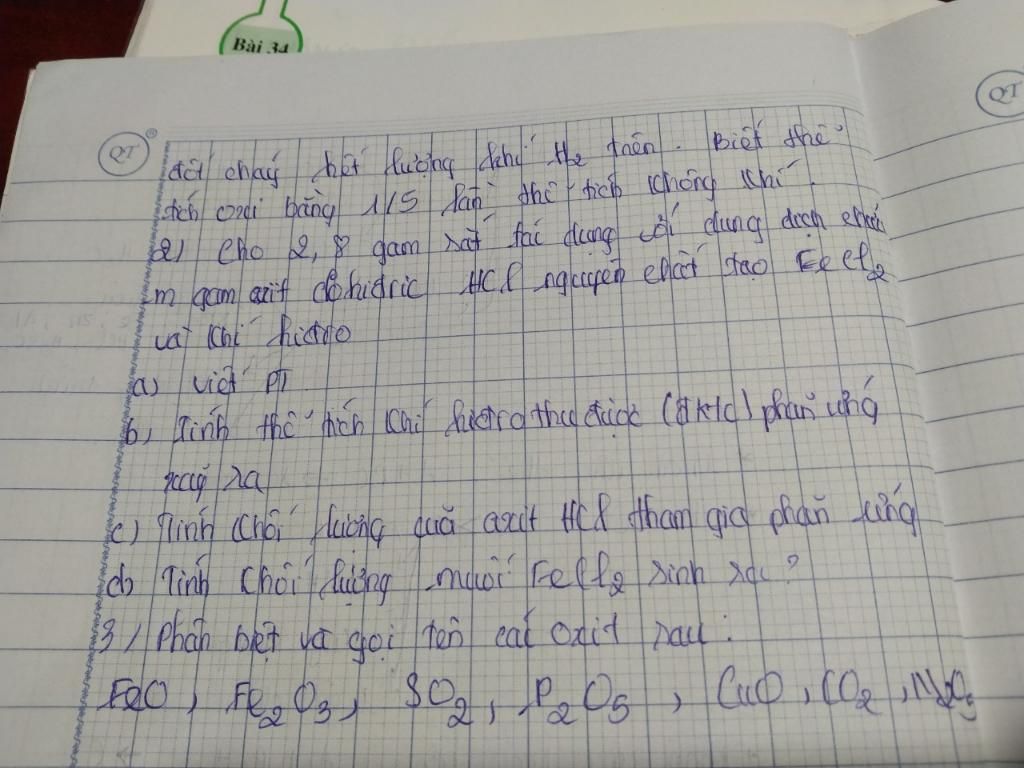 Bài 34
QT
QT
đốt cháy hết lượng khí H2 trên. Biết thể
tích oxi bằng 1/5 lần thể tích không khí.
2) Cho 2,8 gam sắt tác dụng với dung dịch chứa
m gam axit clohidric HCl nguyên chất tạo FeCl2
và khí hidro
a) Viết PT
b, Tính thể tích khí hidro thu được (đktc) phản ứng
xảy ra
c) Tính khối lượng của axit HCl tham gia phản ứng
d) Tính khối lượng muối FeCl2 sinh ra?
3, Phân biệt và gọi tên các oxit sau:
FeO, Fe2O3, SO2, P2O5, CuO, CO2, N2O5